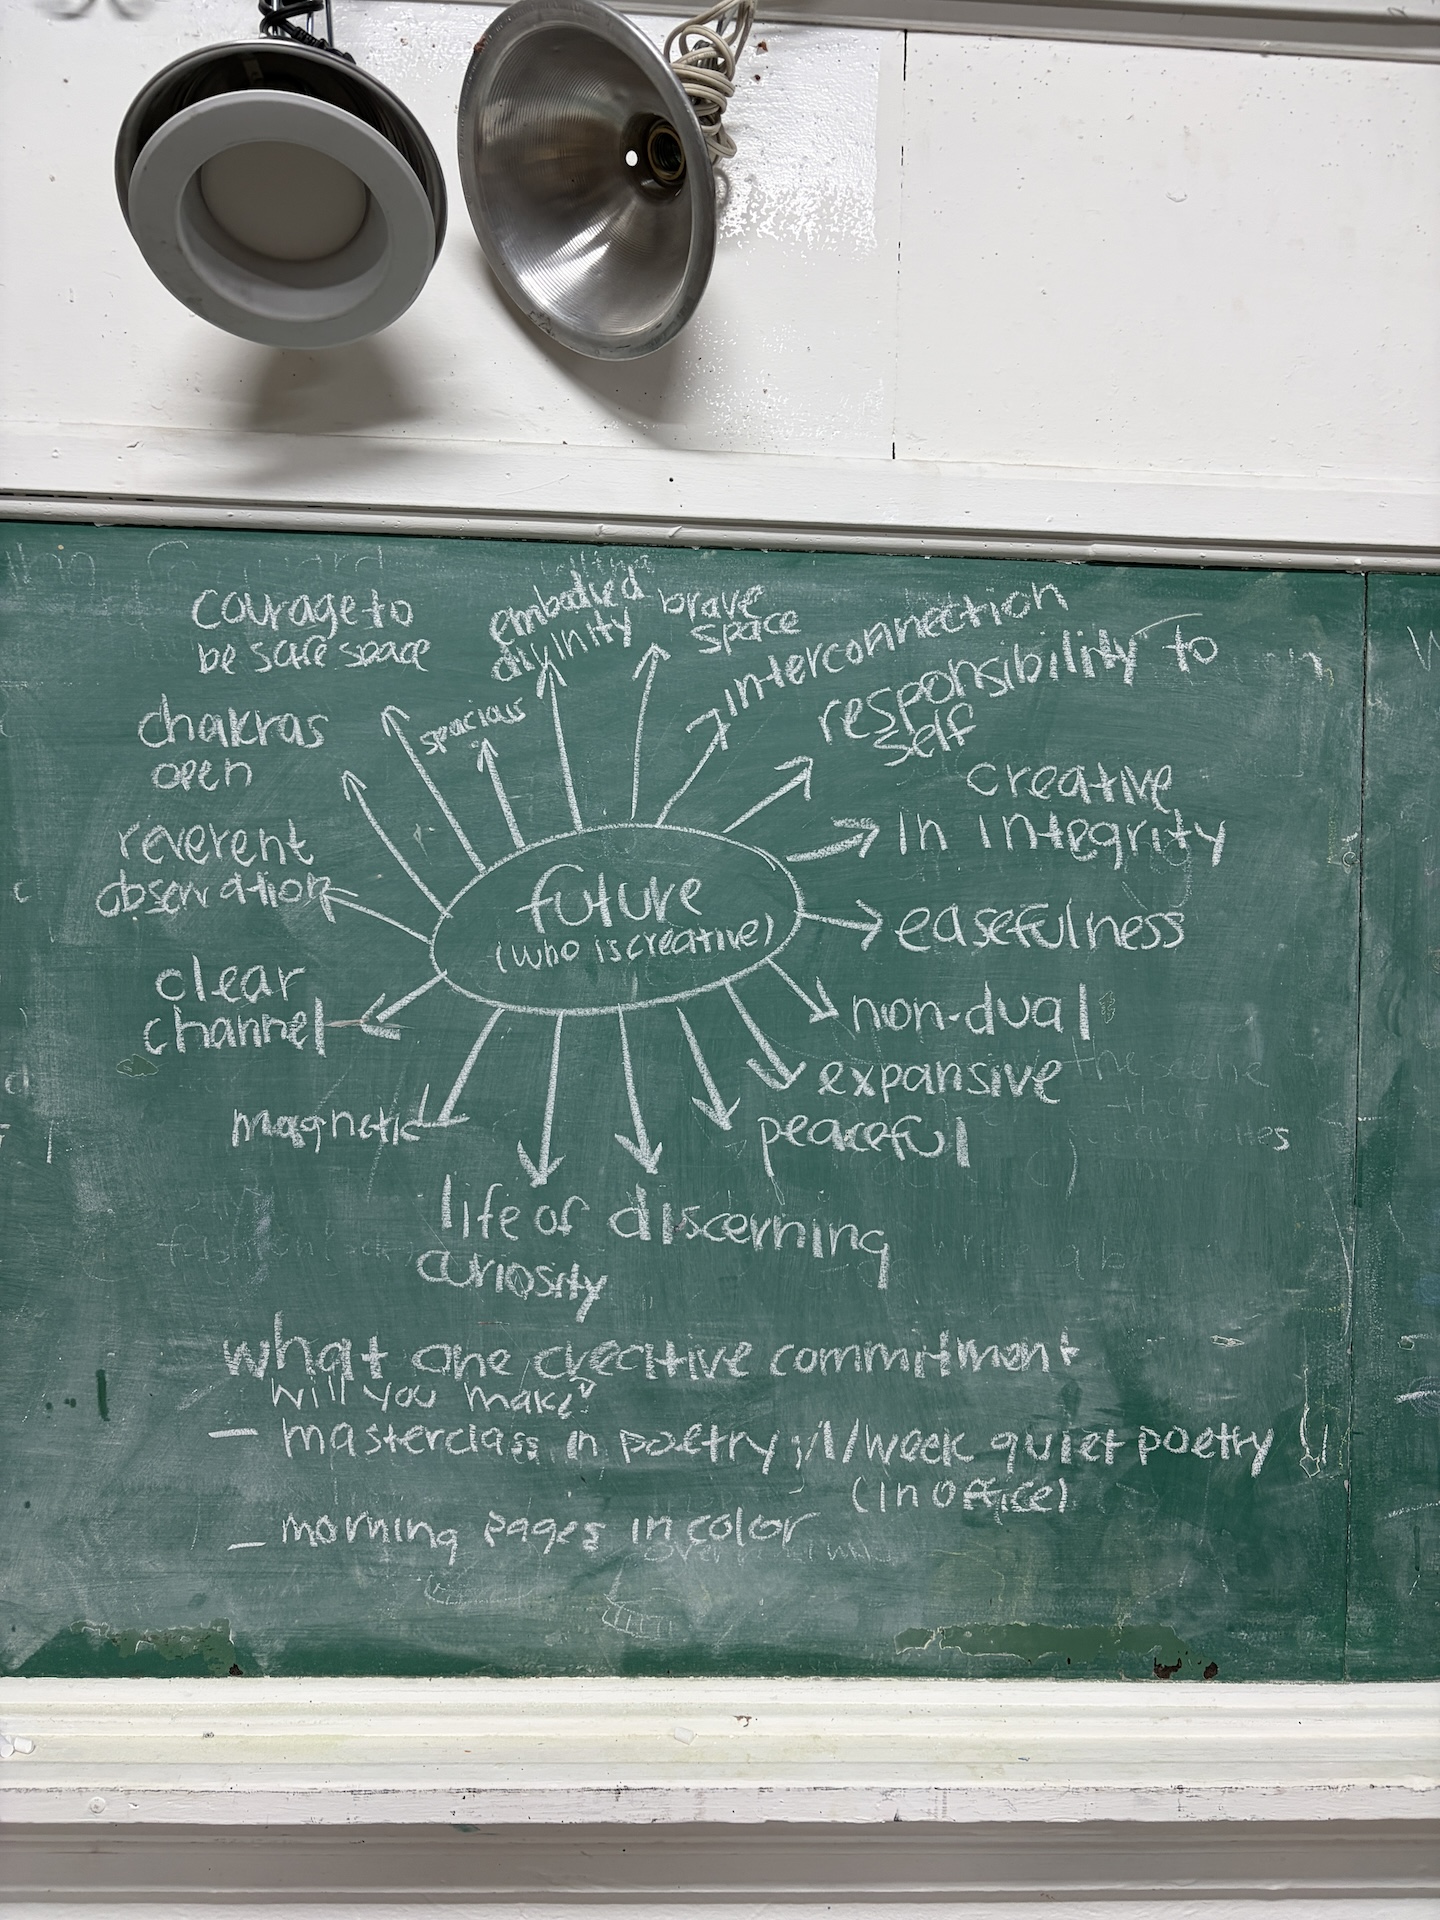 courage to
be safe space
embodied
divinity
brave
space
interconnection
responsibility to
self
chakras
open
spacious
creative
in integrity
reverent
observation
future
(who is creative)
easefulness
clear
channel
non-dual
expansive
magnetic
peaceful
life of discerning
curiosity
what one creative commitment
will you make?
- masterclass in poetry ; 1/week quiet poetry
(in office)
- morning pages in color